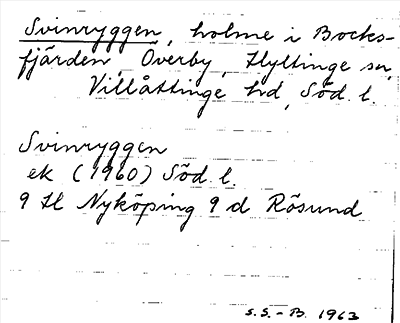 Svinryggen, holme i Bocks-
fjärden, Överby, Hyltinge sn,
Villåttinge hd, Söd. l.
Svinryggen
ek (1960) Söd. l.
9 H Nyköping 9 d Rösund
S.S.-B. 1963